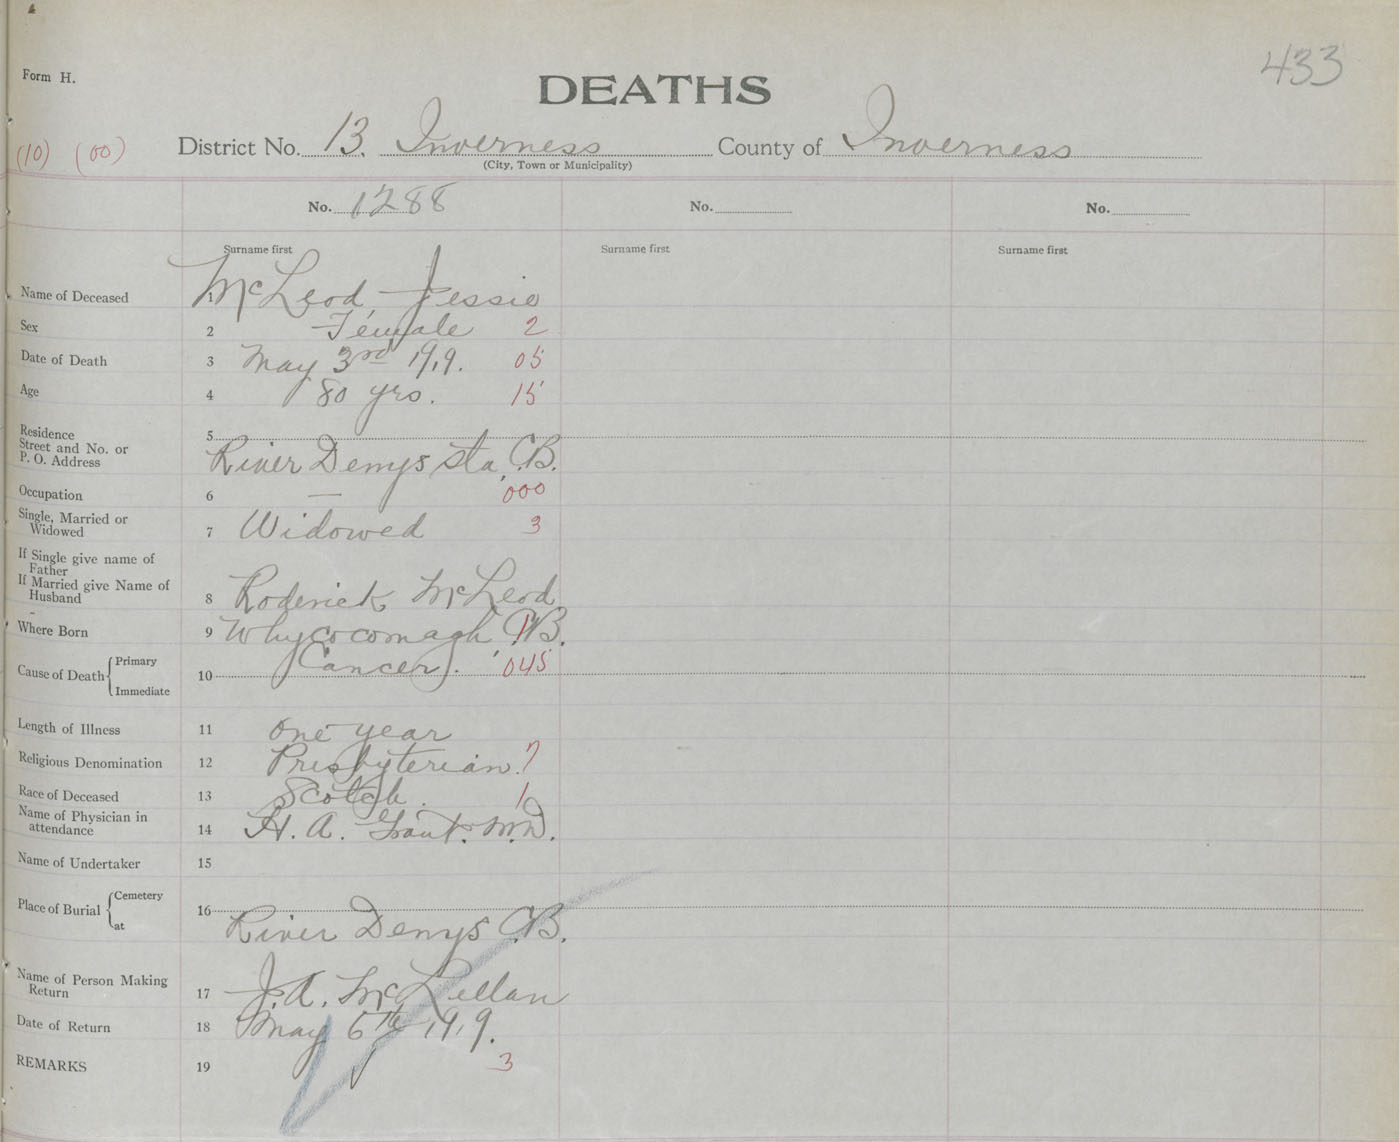 433
Form H.
DEATHS
(10) (00) District No. 13. Inverness County of Inverness
(City, Town or Municipality)
No. 1288 No. No.
Surname first Surname first Surname first
Name of Deceased 1 McLeod, Jessie
Sex 2 Female 2
Date of Death 3 May 3rd 1919. 05
Age 4 80 yrs. 15
Residence
Street and No. or
P. O. Address 5 River Denys Sta, C.B.
Occupation 6 — 000
Single, Married or
Widowed 7 Widowed 3
If Single give name of
Father
If Married give Name of
Husband 8 Roderick McLeod
Where Born 9 Whycocomagh, C.B. 1
Cause of Death { Primary
Immediate 10 Cancer. 045
Length of Illness 11 one year
Religious Denomination 12 Presbyterian. 7
Race of Deceased 13 Scotch. 1
Name of Physician in
attendance 14 H. A. Grant. M.D.
Name of Undertaker 15
Place of Burial { Cemetery
at 16 River Denys C.B.
Name of Person Making
Return 17 J. A. McLellan
Date of Return 18 May 6th 1919.
REMARKS 19 3